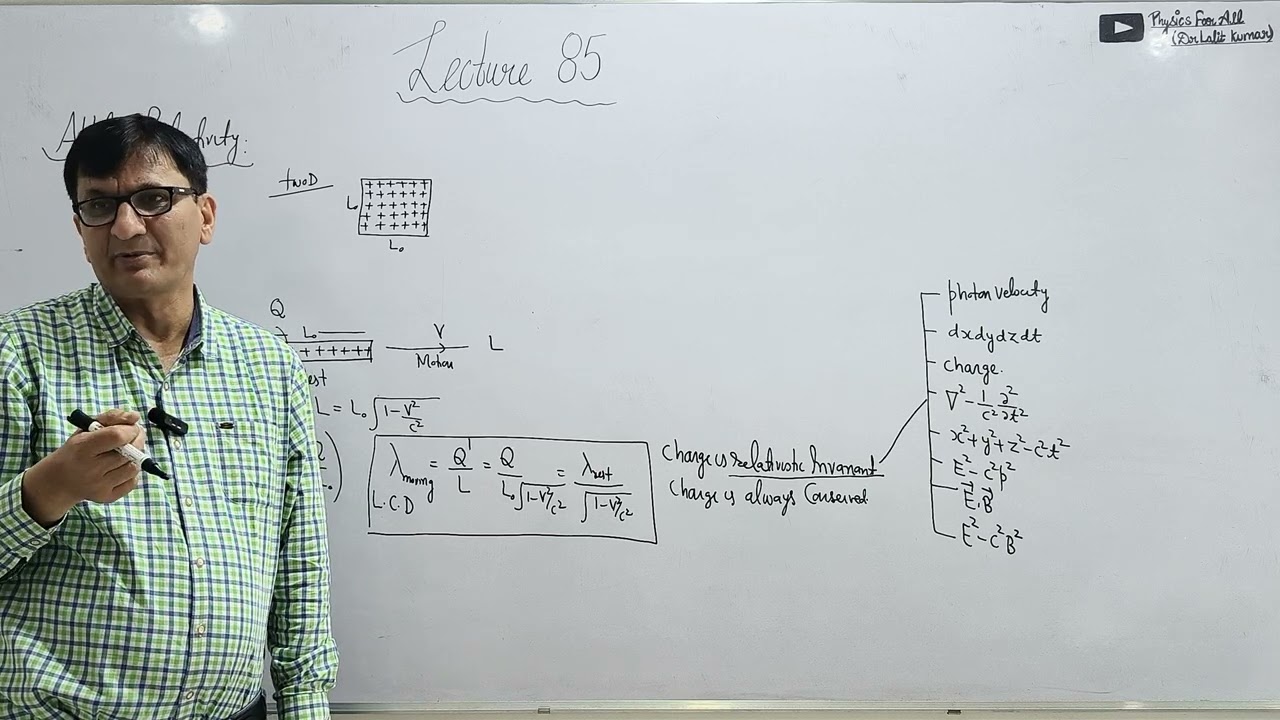 Lecture 85
Physics For All
(Dr Lalit Kumar)
twoD
L₀
L₀
Q
L₀
V
Motion
L
L = L₀√(1-V²/c²)
λmoving = Q'/L = Q/(L₀√(1-V²/c²)) = λrest/√(1-V²/c²)
L.C.D
Charge is relativistic Invariant
Charge is always Conserved
photon velocity
dxdydzdt
charge.
∇² - 1/c² ∂²/∂t²
x²+y²+z²-c²t²
E²-c²p²
E⃗.B⃗
E²-c²B²